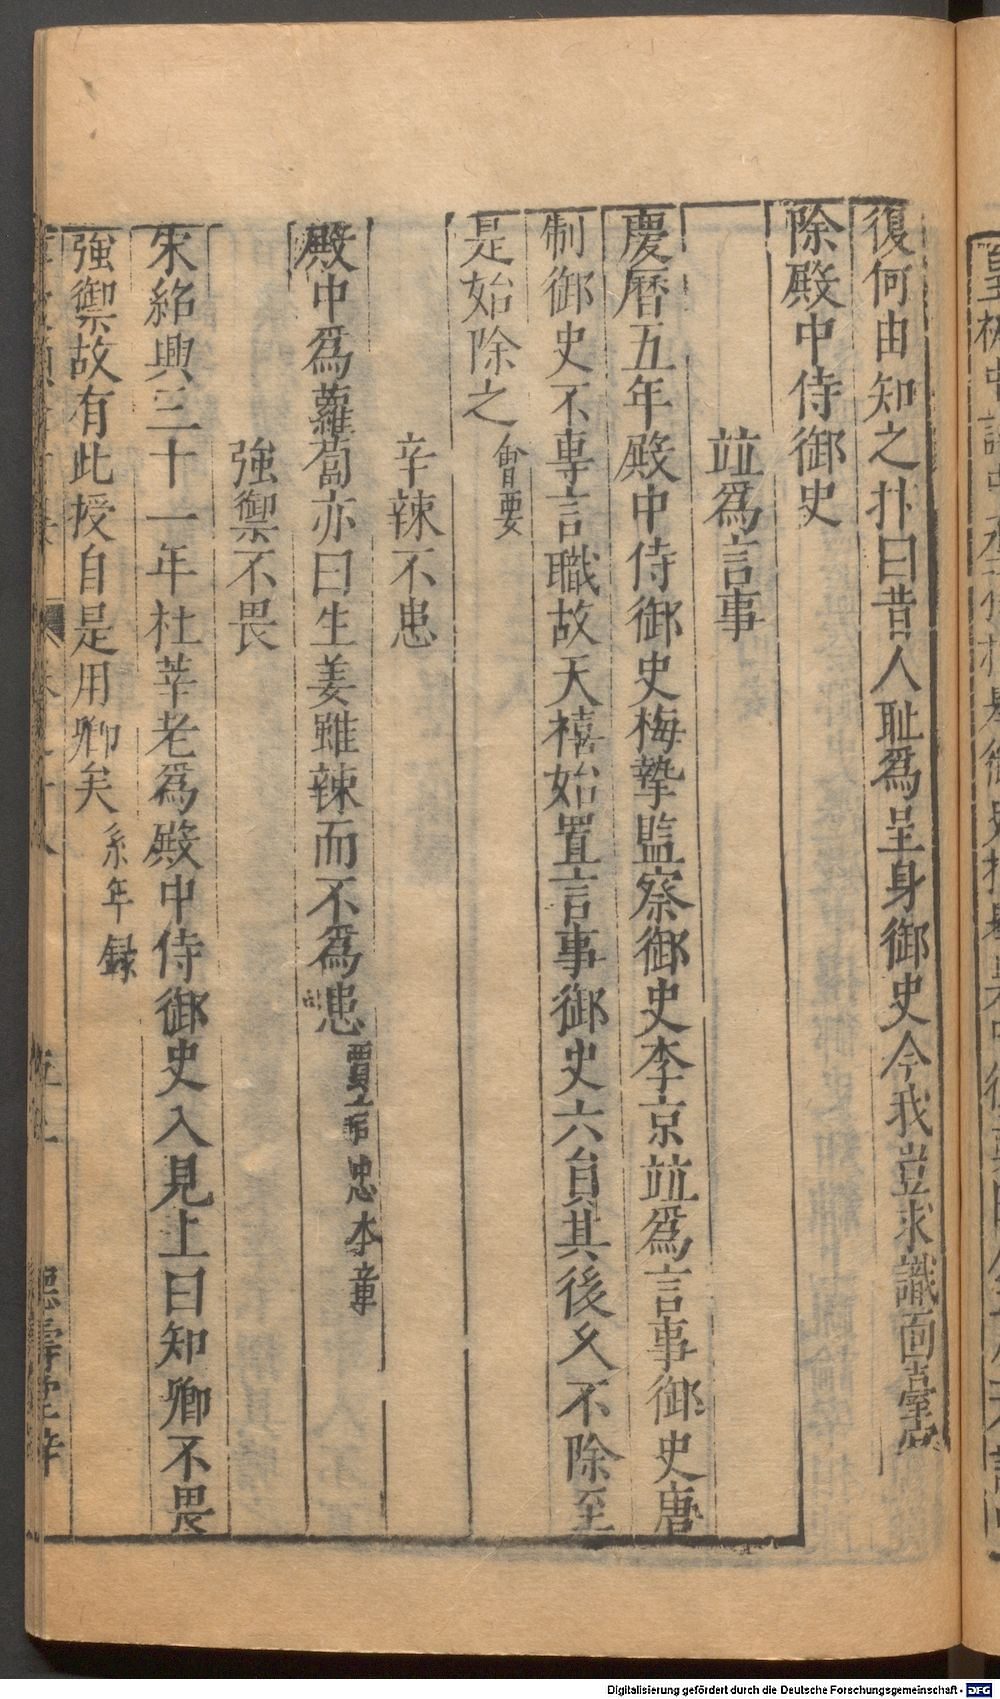 復何由知之抃曰昔人耻爲呈身御史今我豈求識面臺官
除殿中侍御史
竝爲言事
慶曆五年殿中侍御史梅摯監察御史李京竝爲言事御史唐
制御史不專言職故天禧始置言事御史六員其後久不除至
是始除之 會要
辛辣不患
殿中爲蘿蔔亦曰生姜雖辣而不爲患 賈 忠 本 章
強禦不畏
宋紹興三十一年杜莘老爲殿中侍御史入見上曰知卿不畏
強禦故有此授自是用卿矣 系年録
Digitalisierung gefördert durch die Deutsche Forschungsgemeinschaft - DFG